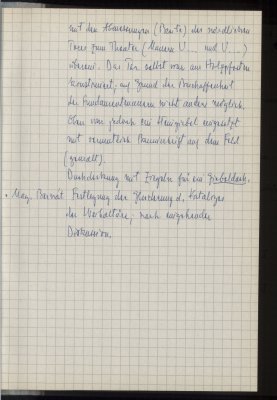 mit den Abmessungen (Breite) des nördlichen
Tores zum Theater (Mauern V... und V...)
überein. Das Tor selbst war aus Holzpfosten
konstruiert, auf Grund der Beschaffenheit
der Fundamentmauern nicht anders möglich.
Oben war jedoch ein Steingiebel eingesetzt
mit vermutlich Bauinschrift auf dem Feld
(gemalt).
Dachdeckung mit Ziegeln für ein Giebeldach.
• Mag. Bernát Festlegung der Gliederung d. Kataloges
der Weihaltäre, nach eingehender
Diskussion.